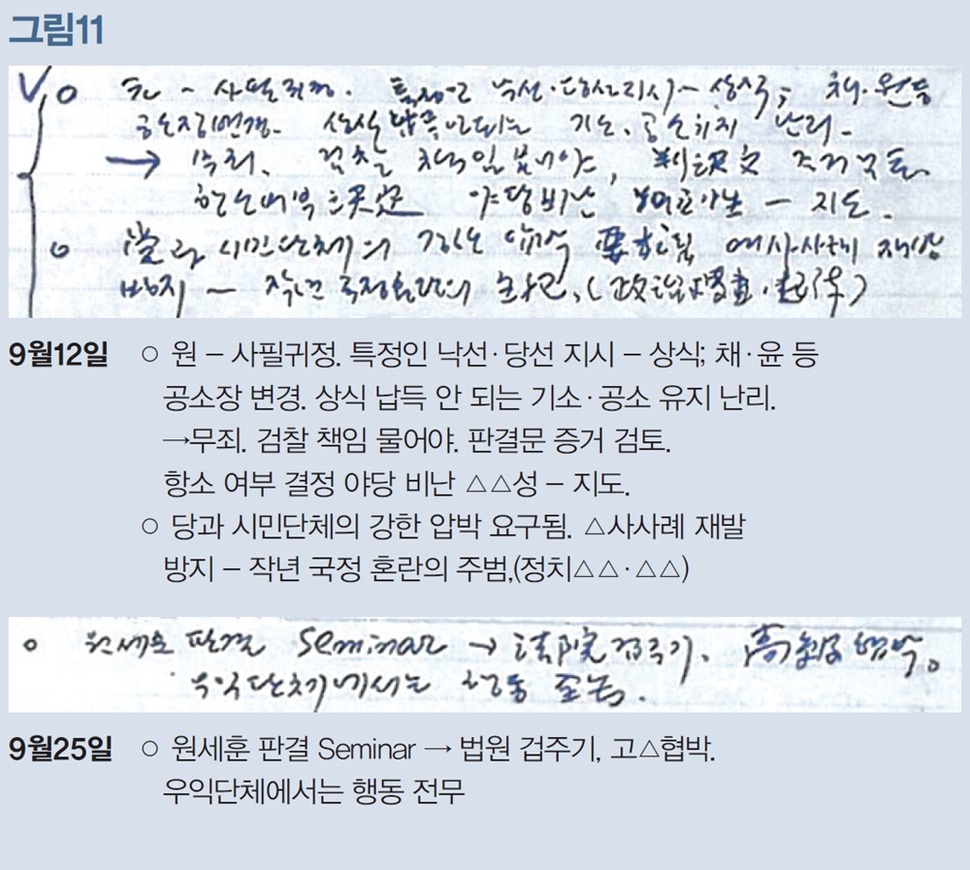 그림11
V, ○ 元 - 사필귀정. 특정인 낙선·당선지시 - 상식; 채·윤등
공소장변경. 상식 납득안되는 기소·공소유지 난리.
→ 무죄. 검찰 책임 물어야, 判決文 증거 검토
항소여부 決定 야당비난 - 지도.
○ 당과 시민단체의 강한 압박 要求됨 사사례 재발
방지 - 작년 국정혼란의 주범,(政治
9월12일 ○ 원 – 사필귀정. 특정인 낙선·당선 지시 – 상식; 채·윤 등
공소장 변경. 상식 납득 안 되는 기소·공소 유지 난리.
→무죄. 검찰 책임 물어야. 판결문 증거 검토.
항소 여부 결정 야당 비난 △△성 – 지도.
○ 당과 시민단체의 강한 압박 요구됨. △사사례 재발
방지 – 작년 국정 혼란의 주범,(정치△△·△△)
○ 원세훈 판결 Seminar → 法院 겁주기, 협박。
우익단체에서는 행동 全無.
9월25일 ○ 원세훈 판결 Seminar → 법원 겁주기, 고△협박.
우익단체에서는 행동 전무